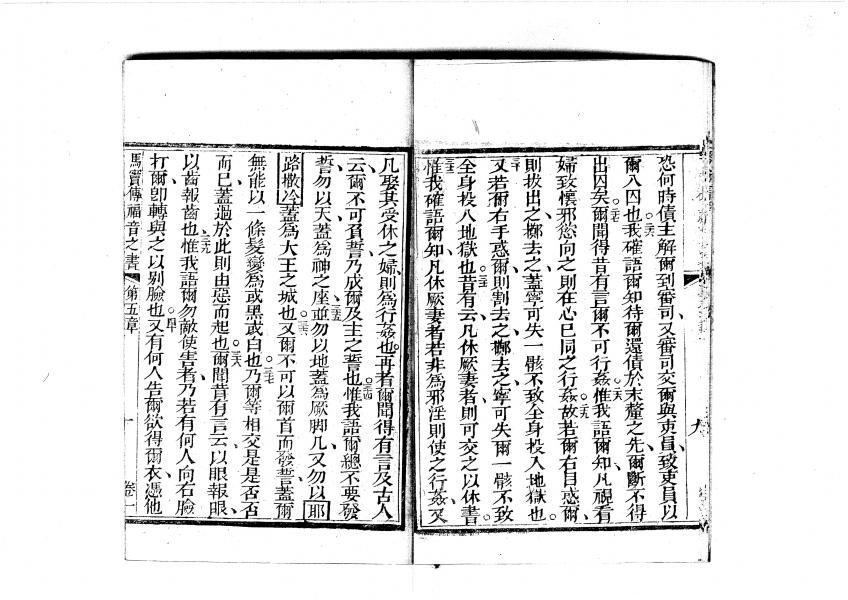 恐何時債主解爾到審司又審司交爾與吏員致吏員以
爾入囚也。二六我確語爾知待爾還債於末釐之先爾斷不得
出囚矣。二七爾聞得昔有言爾不可行姦。二八惟我語爾知凡視看
婦致懷邪慾向之則在心已同之行姦。二九故若爾右目惑爾
則拔出之擲去之蓋寧可失一骸不致全身投入地獄也。
三十又若爾右手惑爾則割去之擲去之寧可失爾一骸不致
全身投入地獄也。三一昔有云凡休厥妻者則可交之以休書。
三二惟我確語爾知凡休厥妻者若非為邪淫則使之行姦又
九
凡娶其受休之婦則為行姦也。三三再者爾聞得有言及古人
云爾不可負誓乃成爾及主之誓也。三四惟我語爾總不要發
誓勿以天蓋為神之座。三五並勿以地蓋為厥脚几又勿以耶
路撒冷蓋為大王之城也。三六又爾不可以爾首而發誓蓋爾
無能以一條髮變為或黑或白也。三七乃爾等相交是是否否
而已蓋過於此則由惡而起也。三八爾聞昔有言云以眼報眼
以齒報齒也。三九惟我語爾勿敵使害者乃若有何人向右臉
打爾卽轉與之以别臉也。四十又有何人告爾欲得爾衣憑他
馬竇傳福音之書 第五章 十 卷一